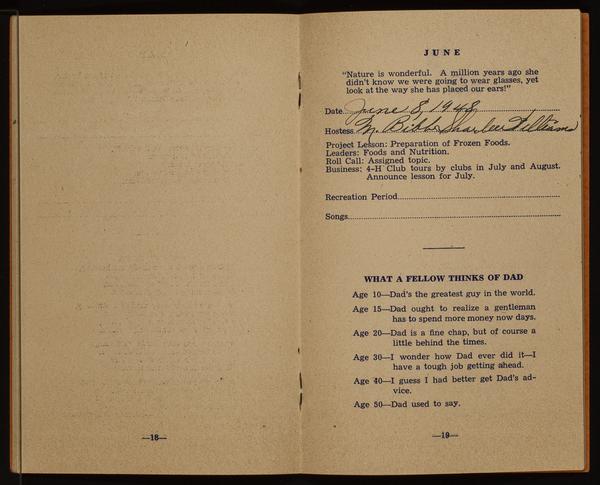 —18—
JUNE
"Nature is wonderful. A million years ago she
didn't know we were going to wear glasses, yet
look at the way she has placed our ears!"
Date June 8, 1948
Hostess M. Bibbs Sharlee Williams
Project Lesson: Preparation of Frozen Foods.
Leaders: Foods and Nutrition.
Roll Call: Assigned topic.
Business: 4-H Club tours by clubs in July and August.
Announce lesson for July.
Recreation Period
Songs
WHAT A FELLOW THINKS OF DAD
Age 10—Dad's the greatest guy in the world.
Age 15—Dad ought to realize a gentleman
has to spend more money now days.
Age 20—Dad is a fine chap, but of course a
little behind the times.
Age 30—I wonder how Dad ever did it—I
have a tough job getting ahead.
Age 40—I guess I had better get Dad's ad-
vice.
Age 50—Dad used to say.
—19—